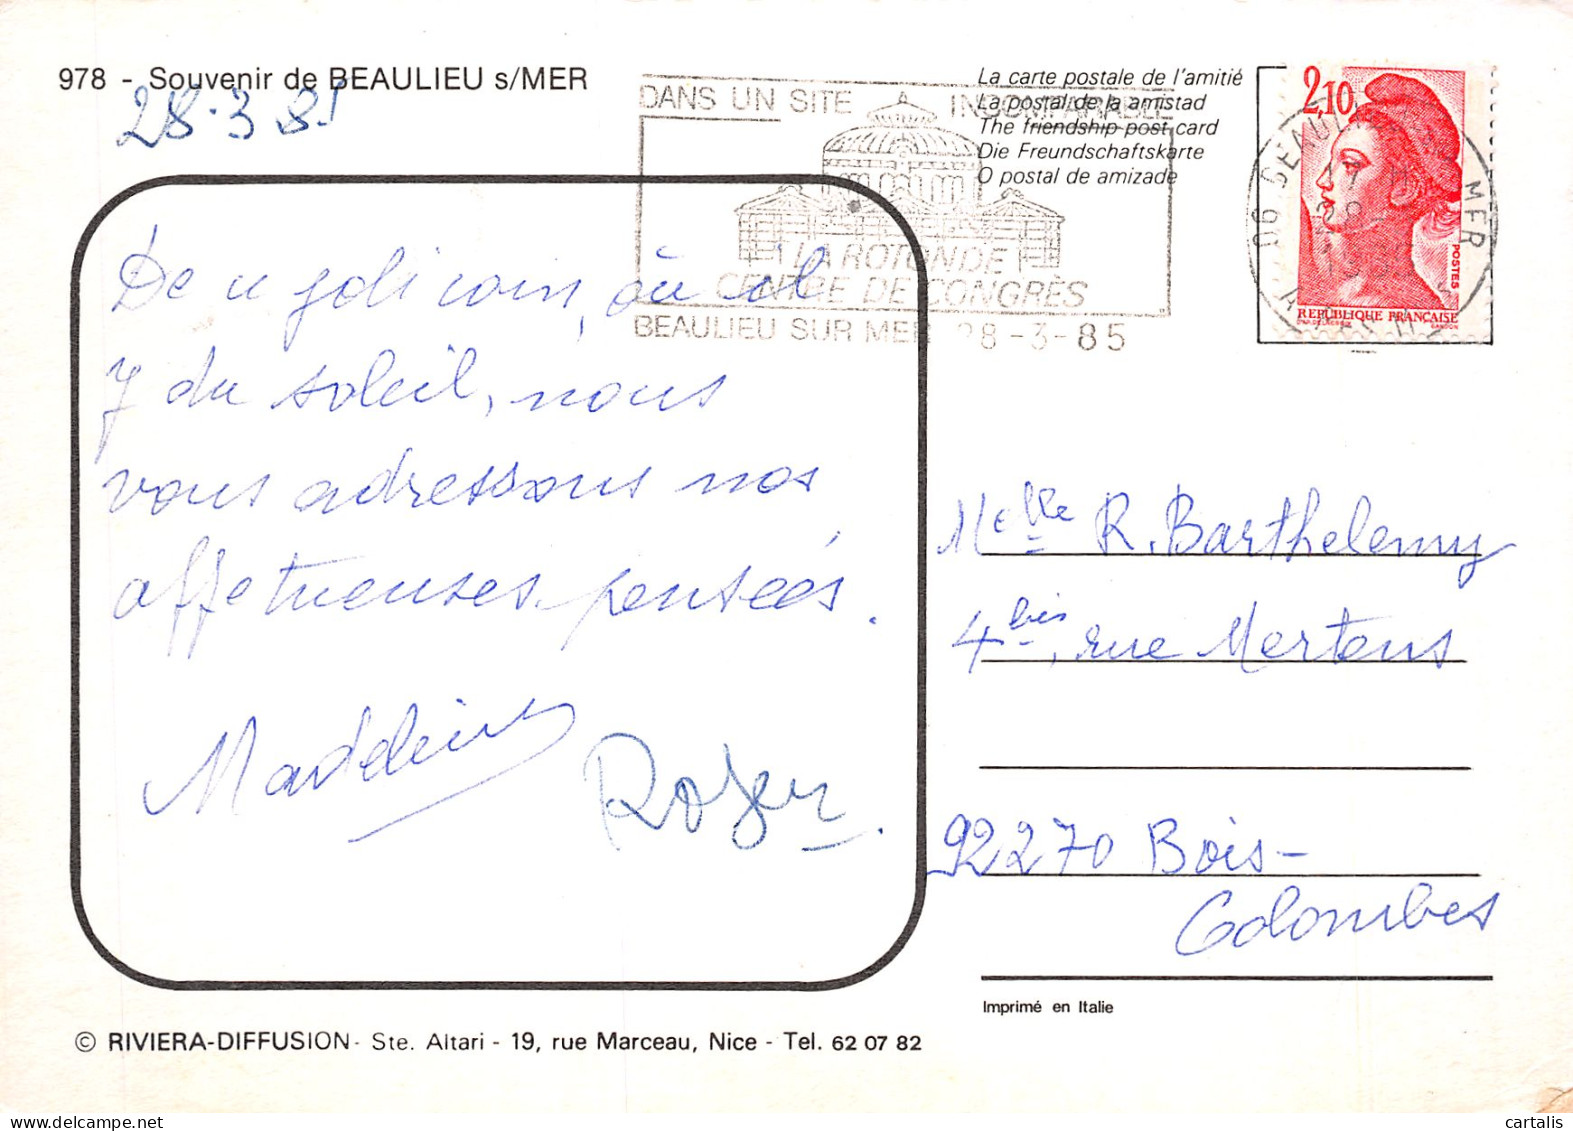 978 - Souvenir de BEAULIEU s/MER
28.3.85
La carte postale de l'amitié
La postal de la amistad
The friendship post card
Die Freundschaftskarte
O postal de amizade
DANS UN SITE INCOMPARABLE
LA ROTONDE
CENTRE DE CONGRÈS
BEAULIEU SUR MER 28-3-85
2,10
POSTES
REPUBLIQUE FRANÇAISE
06 BEAULIEU MER
De ce joli coin, où il
y du soleil, nous
vous adressons nos
affetueuses pensées.
Madeleine
Roger.
Melle R. Barthelemy
4 bis, rue Mertens
92270 Bois-
Colombes
Imprimé en Italie
© RIVIERA-DIFFUSION - Ste. Altari - 19, rue Marceau, Nice - Tel. 62 07 82
cartalis